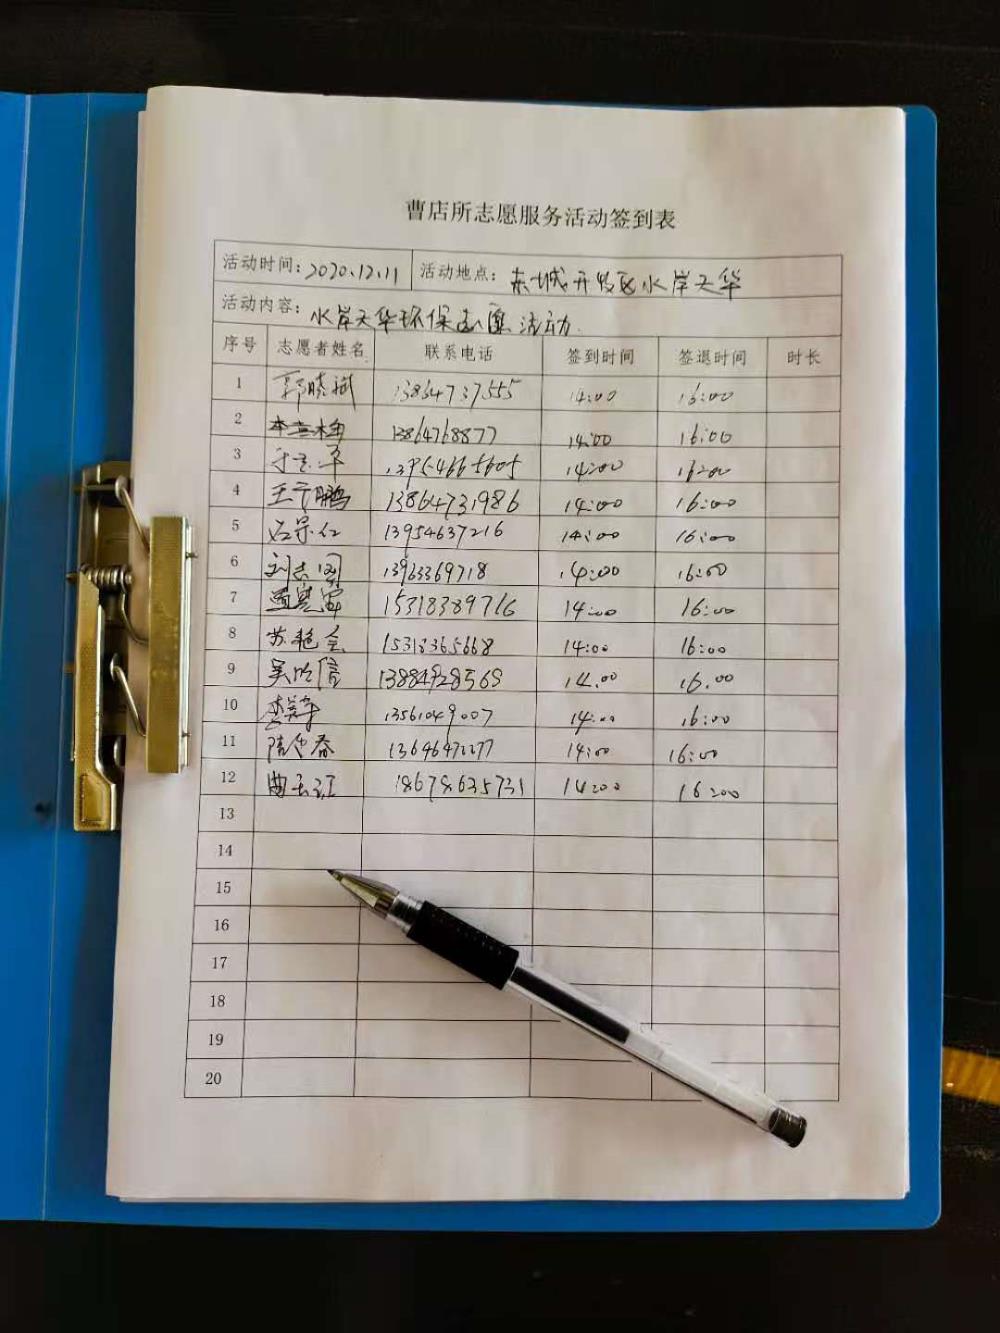 曹店所志愿服务活动签到表
活动时间：2020.12.11 活动地点：东城开发区水岸天华
活动内容：水岸天华环保志愿活动.
序号 志愿者姓名 联系电话 签到时间 签退时间 时长
1 郭晓斌 13864737555 14:00 16:00
2 13864768877 14:00 16:00
3 13954665605 14:00 16:00
4 王宁鹏 13864731986 14:00 16:00
5 13954637216 14:00 16:00
6 刘志国 13963369718 14:00 16:00
7 15318389716 14:00 16:00
8 苏艳会 15318365668 14:00 16:00
9 13884928569 14.00 16.00
10 13561049007 14:00 16:00
11 14:00 16:00
12 曲玉江 18678635731 14:00 16:00
13
14
15
16
17
18
19
20